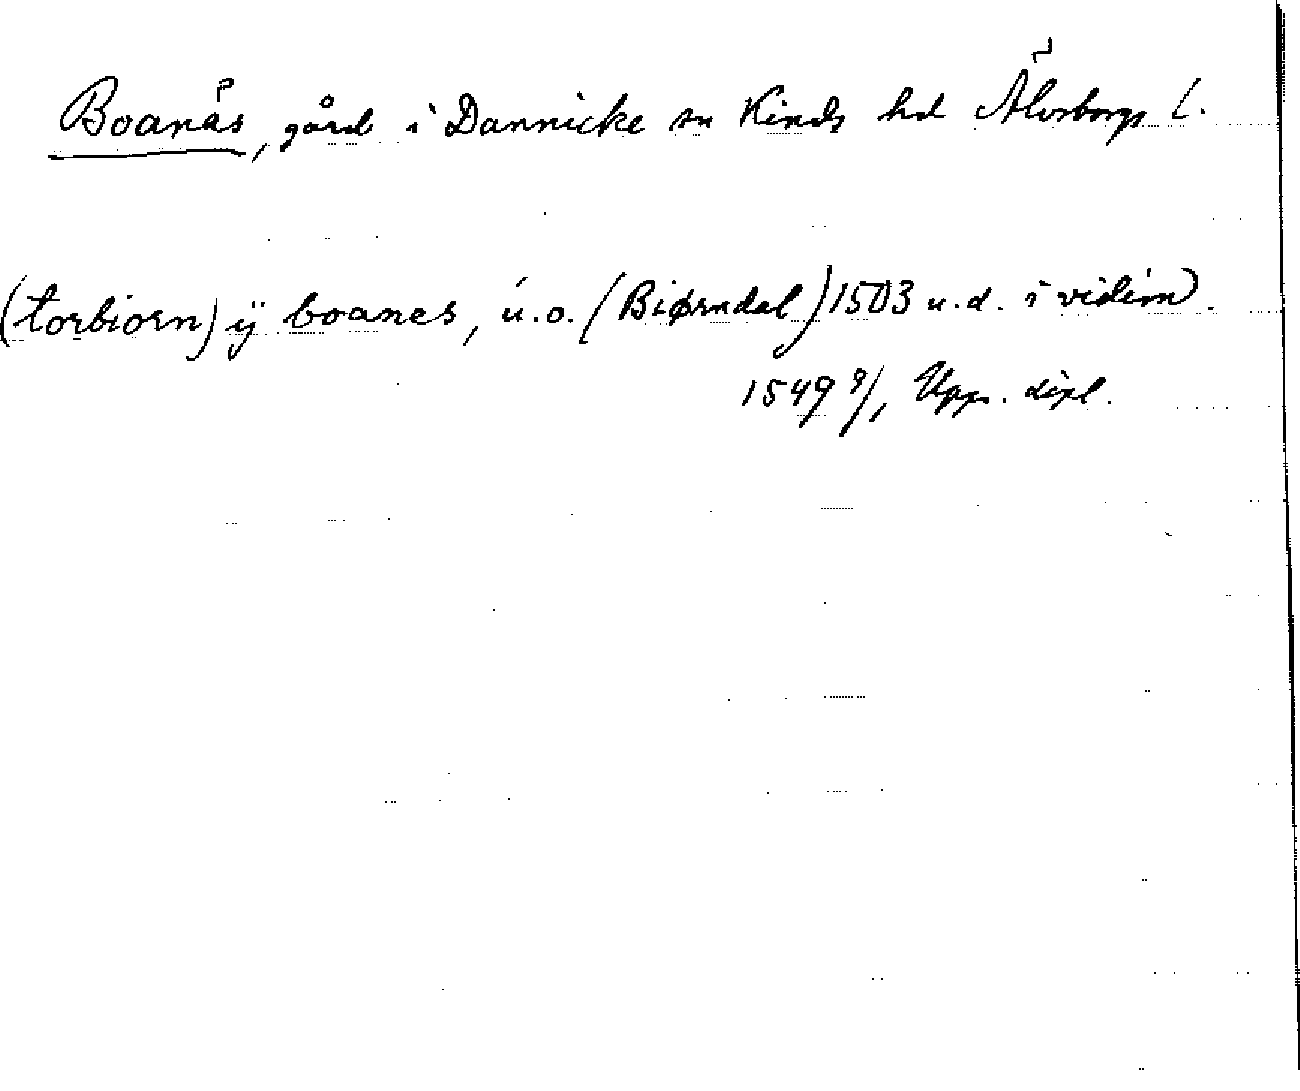 Boanäs, gård i Dannicke sn Kinds hd Älvsborgs l.
(torbiorn) ÿ boanes, u.o. (Biørndal) 1503 u.d. i vidim.
1549 9/1 Upps. dipl.